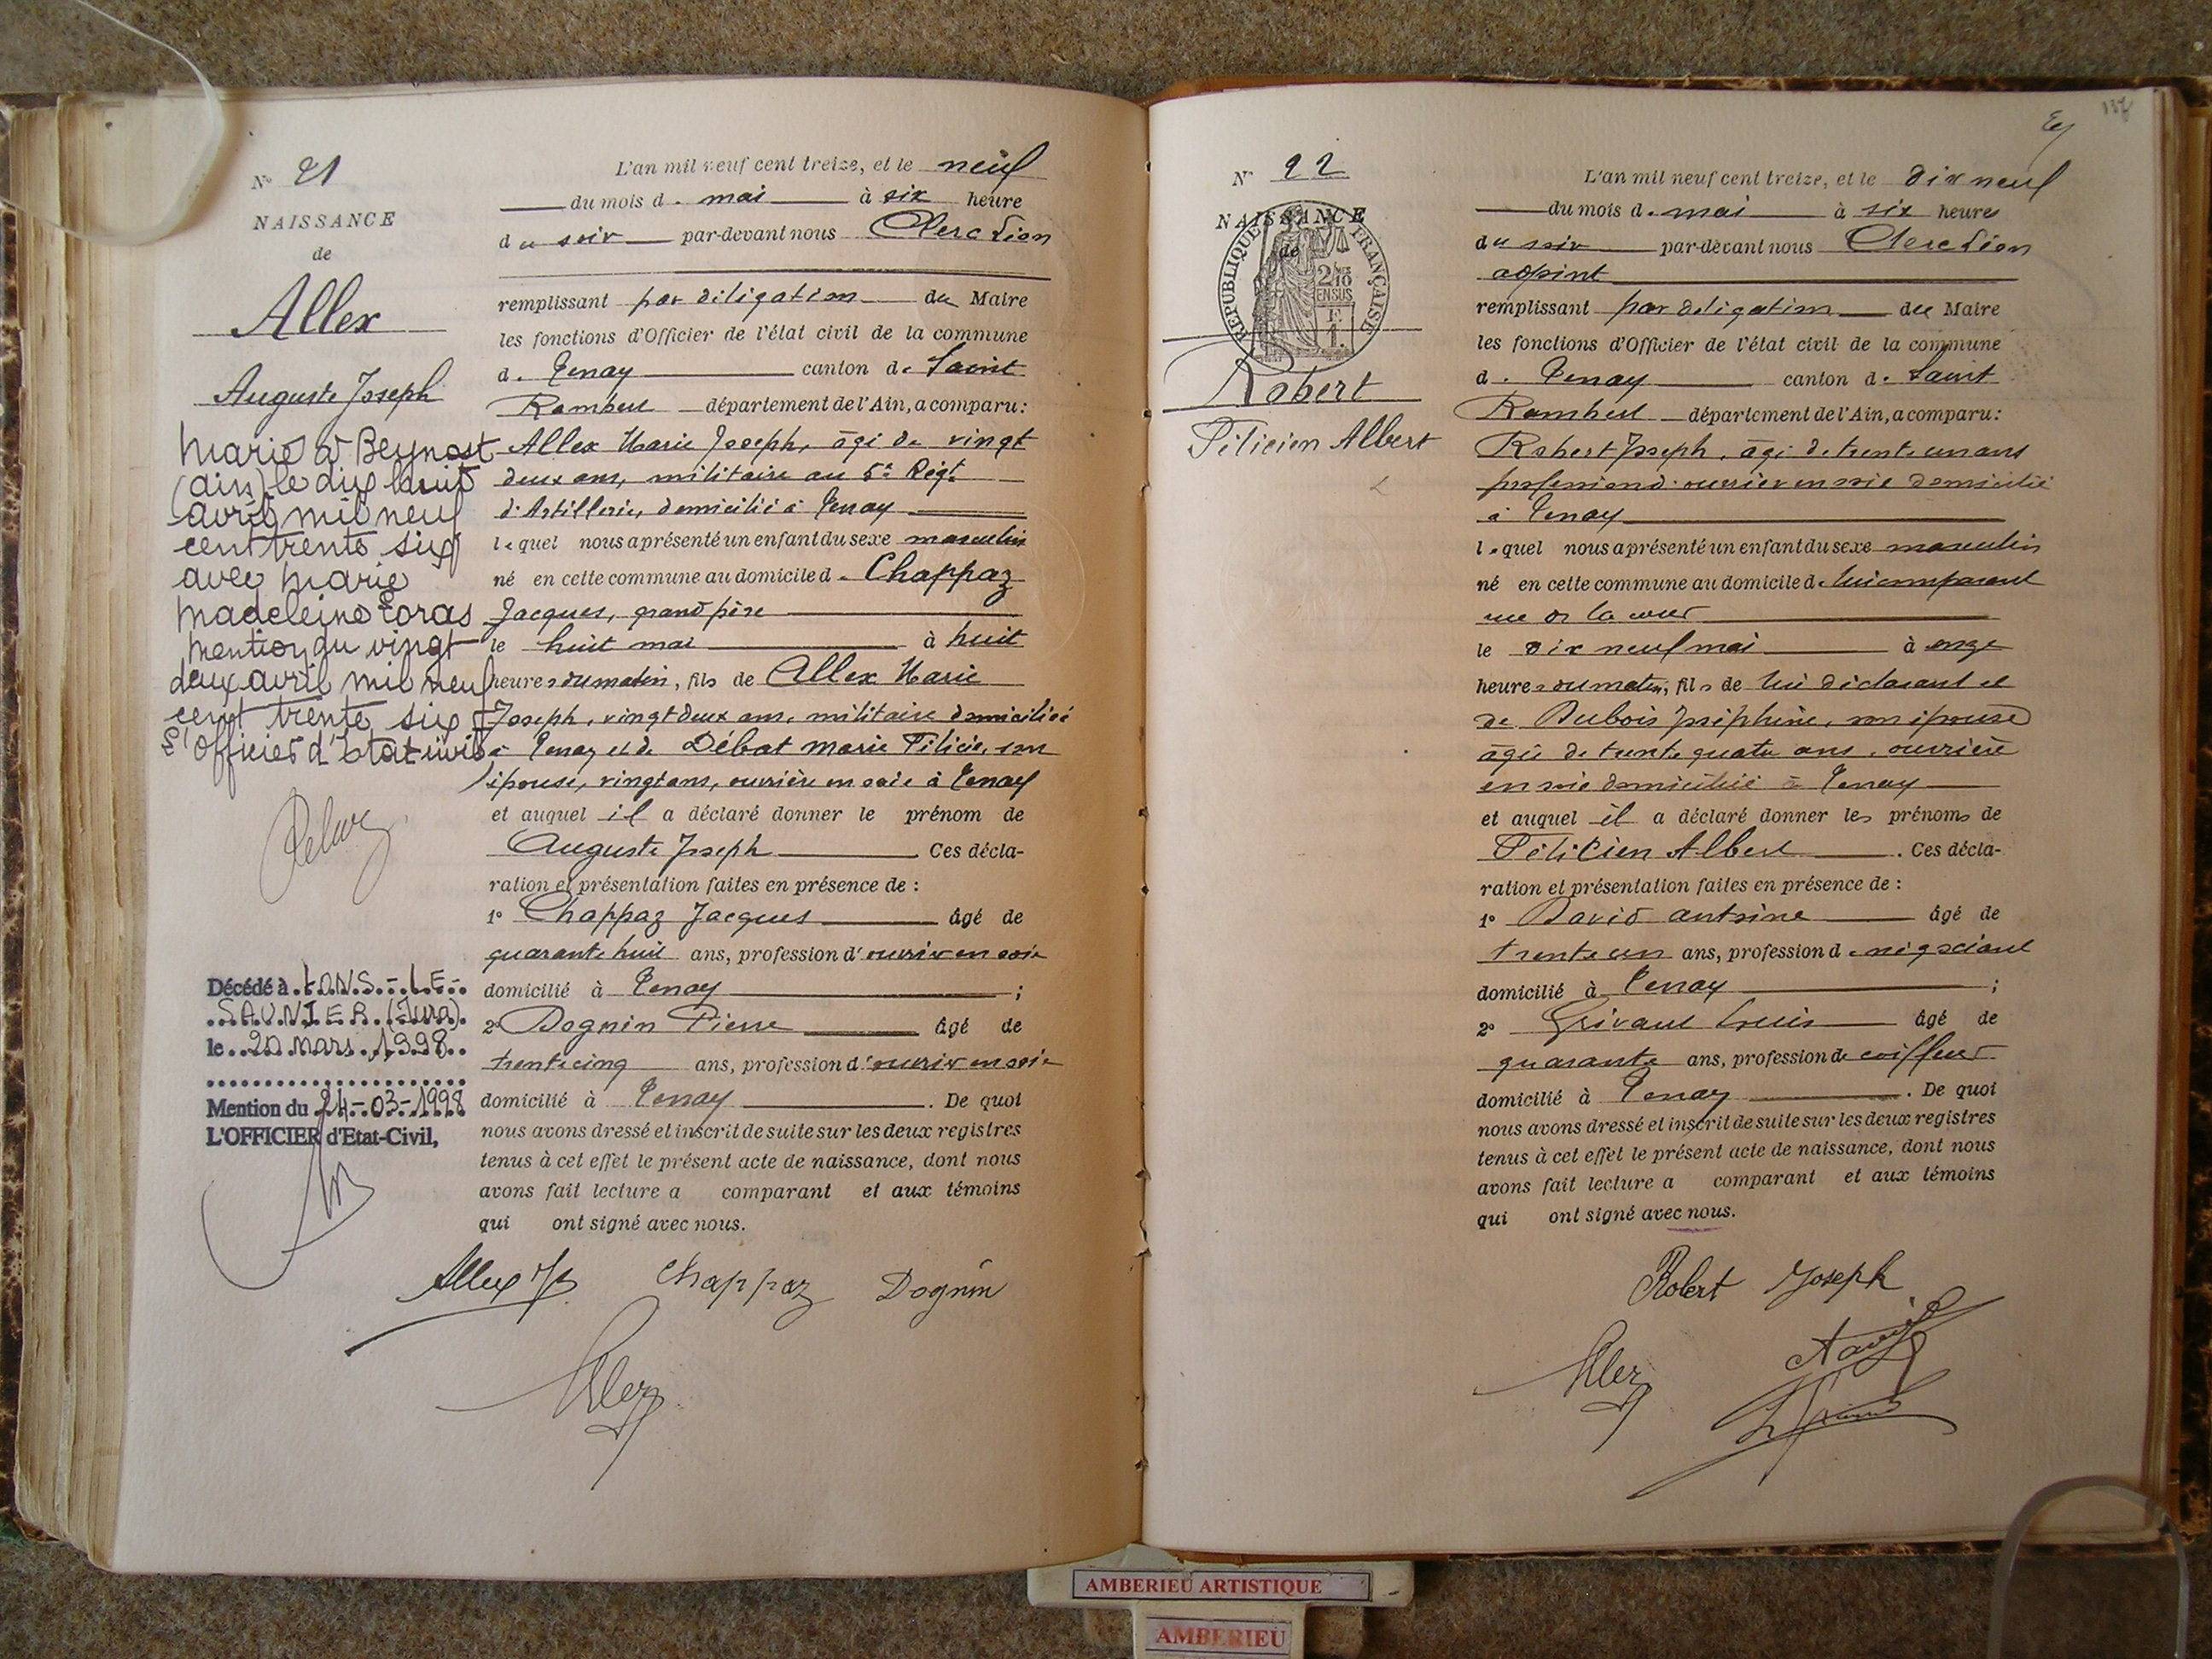 N° 21
NAISSANCE
de
Allex
Auguste Joseph
Marié à Beynost
(Ain) le dix huit
avril mil neuf
cent trente six
avec Marie
Madeleine Coras
Mention du vingt
deux avril mil neuf
cent trente six
L'Officier d'Etat civil
Décédé à LONS-LE-
SAUNIER (Jura)
le 20 mars 1998
Mention du 24-03-1998
L'OFFICIER d'Etat-Civil,
L'an mil neuf cent treize, et le neuf
du mois de mai à six heure
du soir par-devant nous Clerc Léon
remplissant par délégation du Maire
les fonctions d'Officier de l'état civil de la commune
de Tenay canton de Saint
Rambert département de l'Ain, a comparu:
Allex Marie Joseph, âgé de vingt
deux ans, militaire au 5e Régt
d'Artillerie, domicilié à Tenay
lequel nous a présenté un enfant du sexe masculin
né en cette commune au domicile de Chappaz
Jacques, grand père
le huit mai à huit
heures du matin, fils de Allex Marie
Joseph, vingt deux ans, militaire domicilié
à Tenay et de Débat Marie Félicie, son
épouse, vingt ans, ouvrière en soie à Tenay
et auquel il a déclaré donner le prénom de
Auguste Joseph Ces décla-
ration et présentation faites en présence de :
1° Chappaz Jacques âgé de
quarante huit ans, profession d'ouvrier en soie
domicilié à Tenay ;
2° Dognin Pierre âgé de
trente cinq ans, profession d'ouvrier en soie
domicilié à Tenay . De quoi
nous avons dressé et inscrit de suite sur les deux registres
tenus à cet effet le présent acte de naissance, dont nous
avons fait lecture a comparant et aux témoins
qui ont signé avec nous.
Allex Chappaz Dognin
137
N° 22
NAISSANCE
de
REPUBLIQUE FRANÇAISE
2/10
EN SUS
F.
1.
Robert
Félicien Albert
L'an mil neuf cent treize, et le dix neuf
du mois de mai à six heures
du soir par-devant nous Clerc Léon
adjoint
remplissant par délégation du Maire
les fonctions d'Officier de l'état civil de la commune
de Tenay canton de Saint
Rambert département de l'Ain, a comparu:
Robert Joseph, âgé de trente un ans
profession d'ouvrier en soie domicilié
à Tenay
lequel nous a présenté un enfant du sexe masculin
né en cette commune au domicile de lui comparant
rue de la
le dix neuf mai à onze
heures du matin, fils de lui déclarant et
de Dubois Joséphine, son épouse
âgée de trente quatre ans, ouvrière
en soie domiciliée à Tenay
et auquel il a déclaré donner les prénoms de
Félicien Albert . Ces décla-
ration et présentation faites en présence de :
1° David Antoine âgé de
trente un ans, profession de négociant
domicilié à Tenay ;
2° Grivaut Louis âgé de
quarante ans, profession de coiffeur
domicilié à Tenay . De quoi
nous avons dressé et inscrit de suite sur les deux registres
tenus à cet effet le présent acte de naissance, dont nous
avons fait lecture a comparant et aux témoins
qui ont signé avec nous.
Robert Joseph
AMBERIEU ARTISTIQUE
AMBERIEU